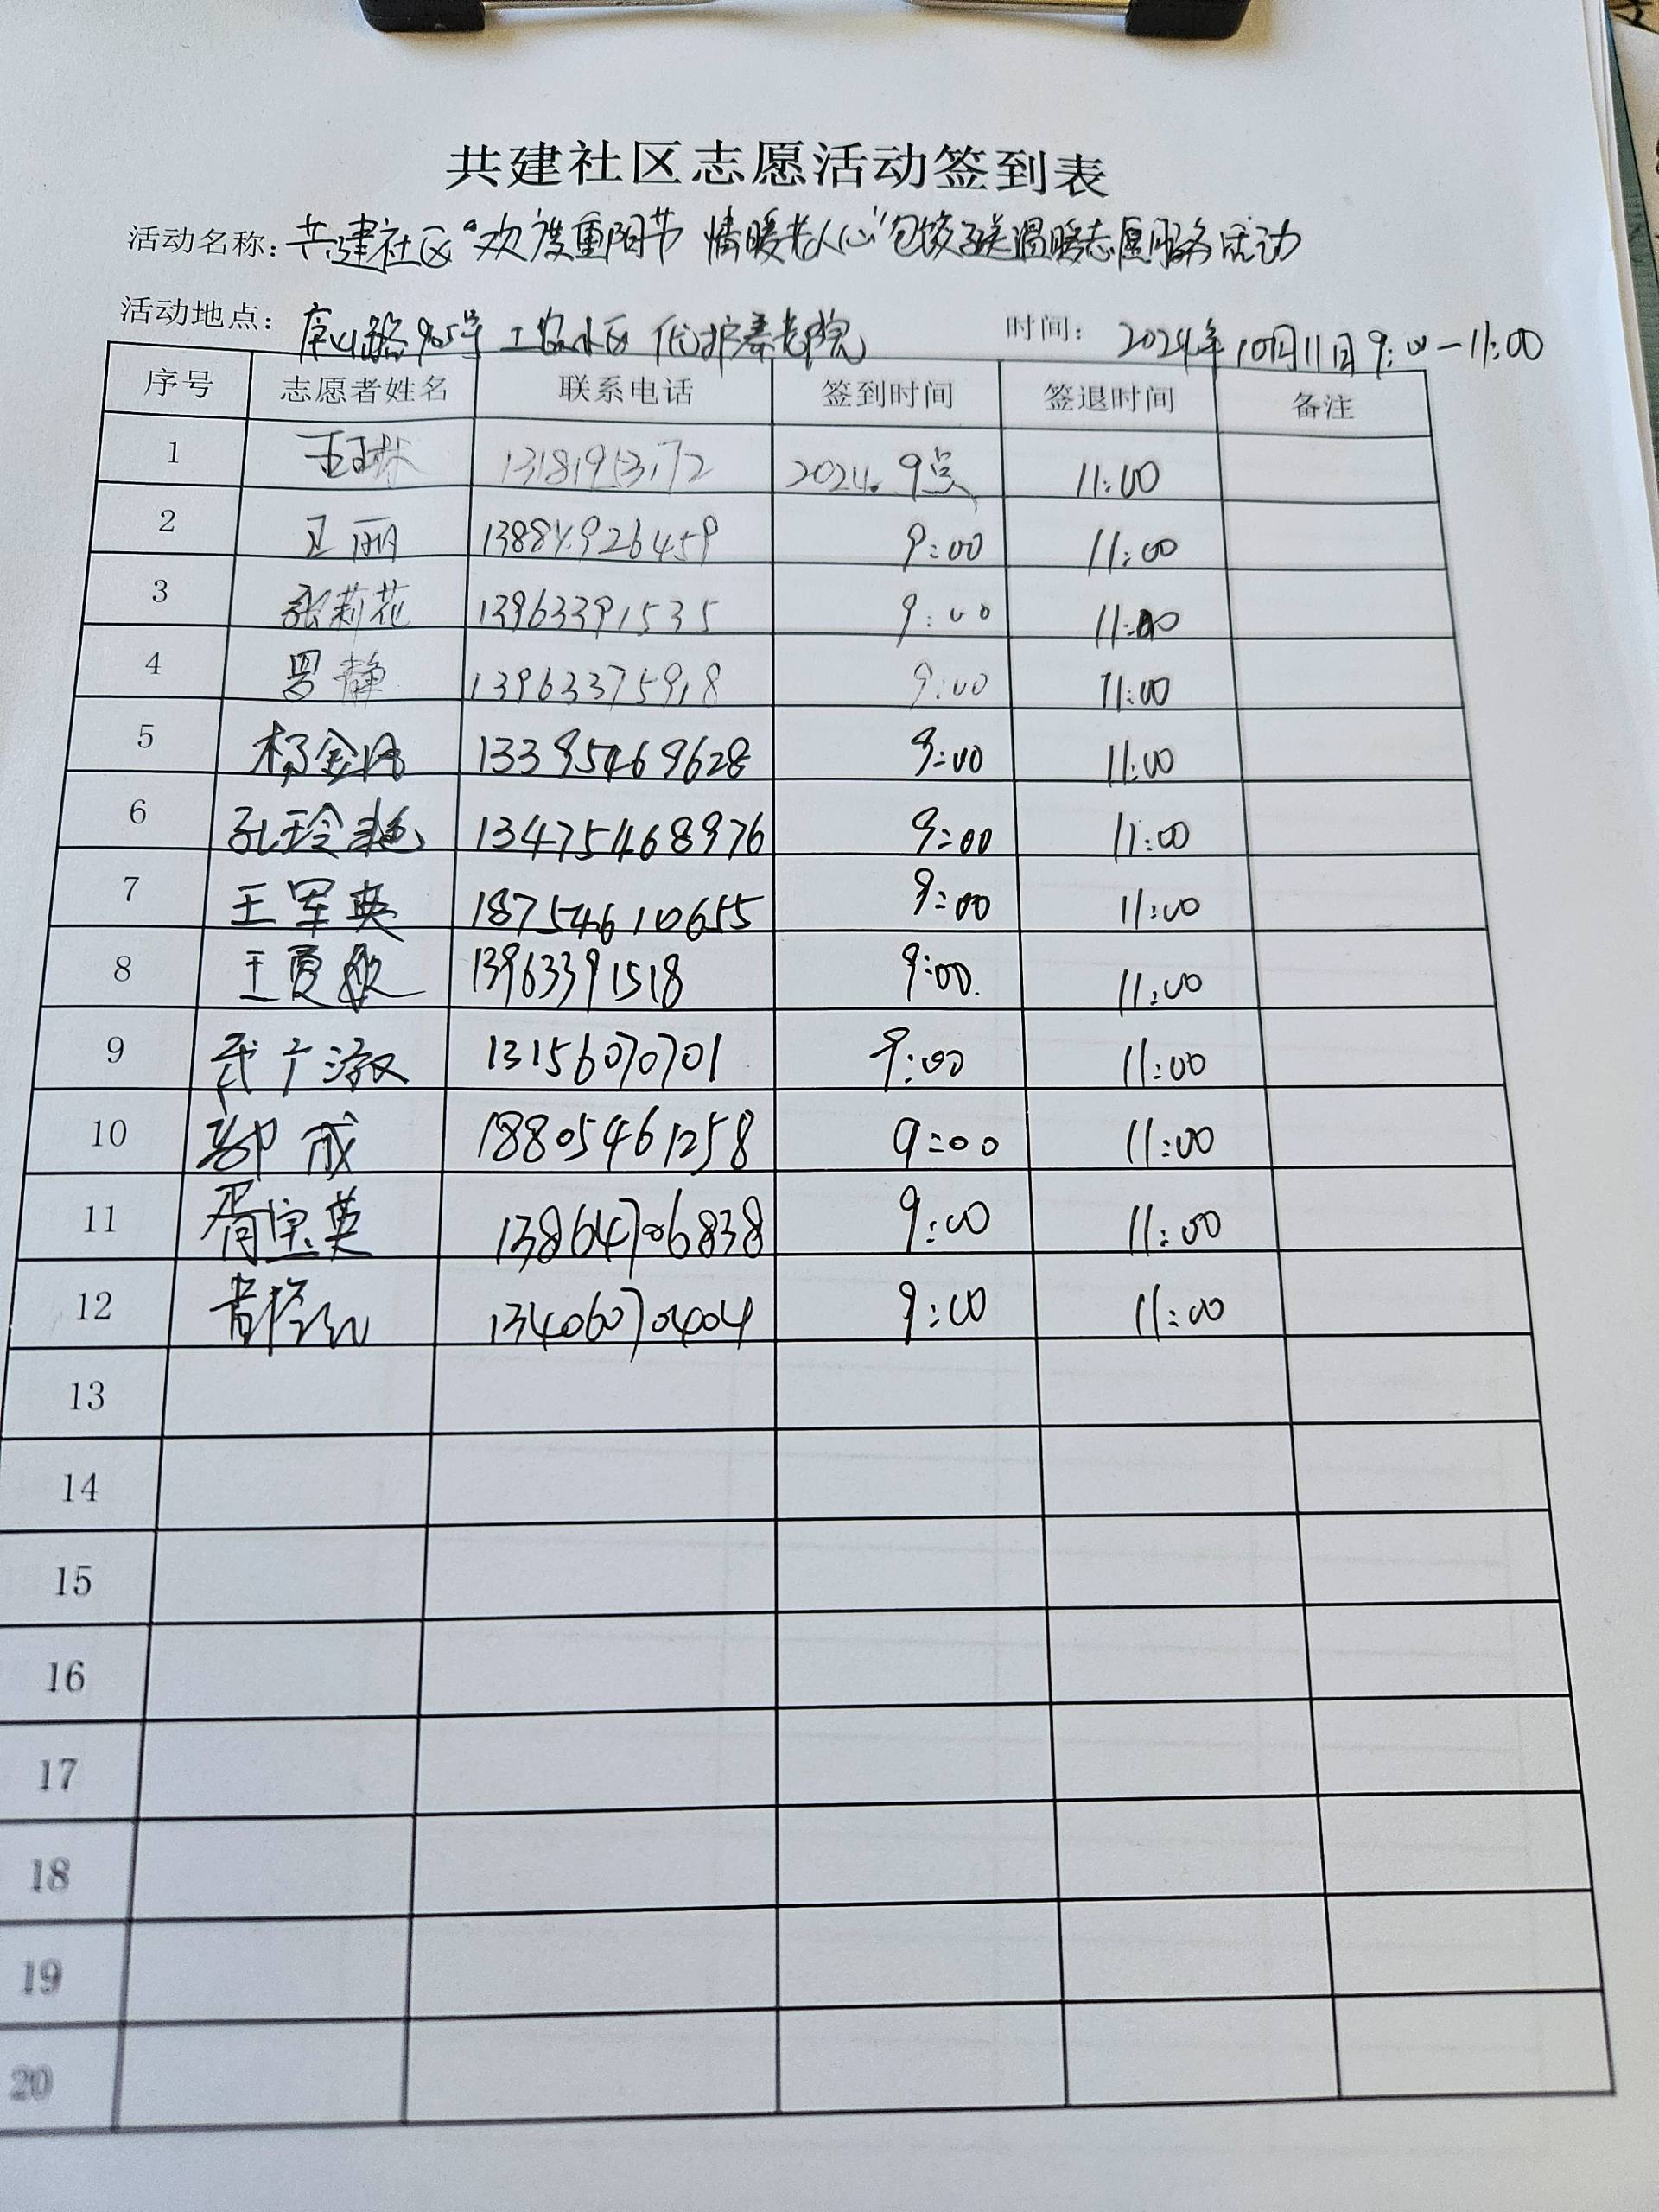 共建社区志愿活动签到表
活动名称: 共建社区“欢度重阳节 情暖老人心”包饺子送温暖志愿服务活动
活动地点: 路905号 工农小区 养老院 时间: 2024年10月11日9:00-11:00
序号 志愿者姓名 联系电话 签到时间 签退时间 备注
1 2024. 9点 11:00
2 王丽 9:00 11:00
3 张莉花 13963391535 9:00 11:00
4 罗静 13963375918 9:00 11:00
5 杨金 13395469628 9:00 11:00
6 孔玲艳 13475468976 9:00 11:00
7 王军英 18754610655 9:00 11:00
8 王夏 13963391518 9:00 11:00
9 武广淑 13156070701 9:00 11:00
10 成 18805461258 9:00 11:00
11 胥宝英 13864706838 9:00 11:00
12 13406070404 9:00 11:00
13
14
15
16
17
18
19
20